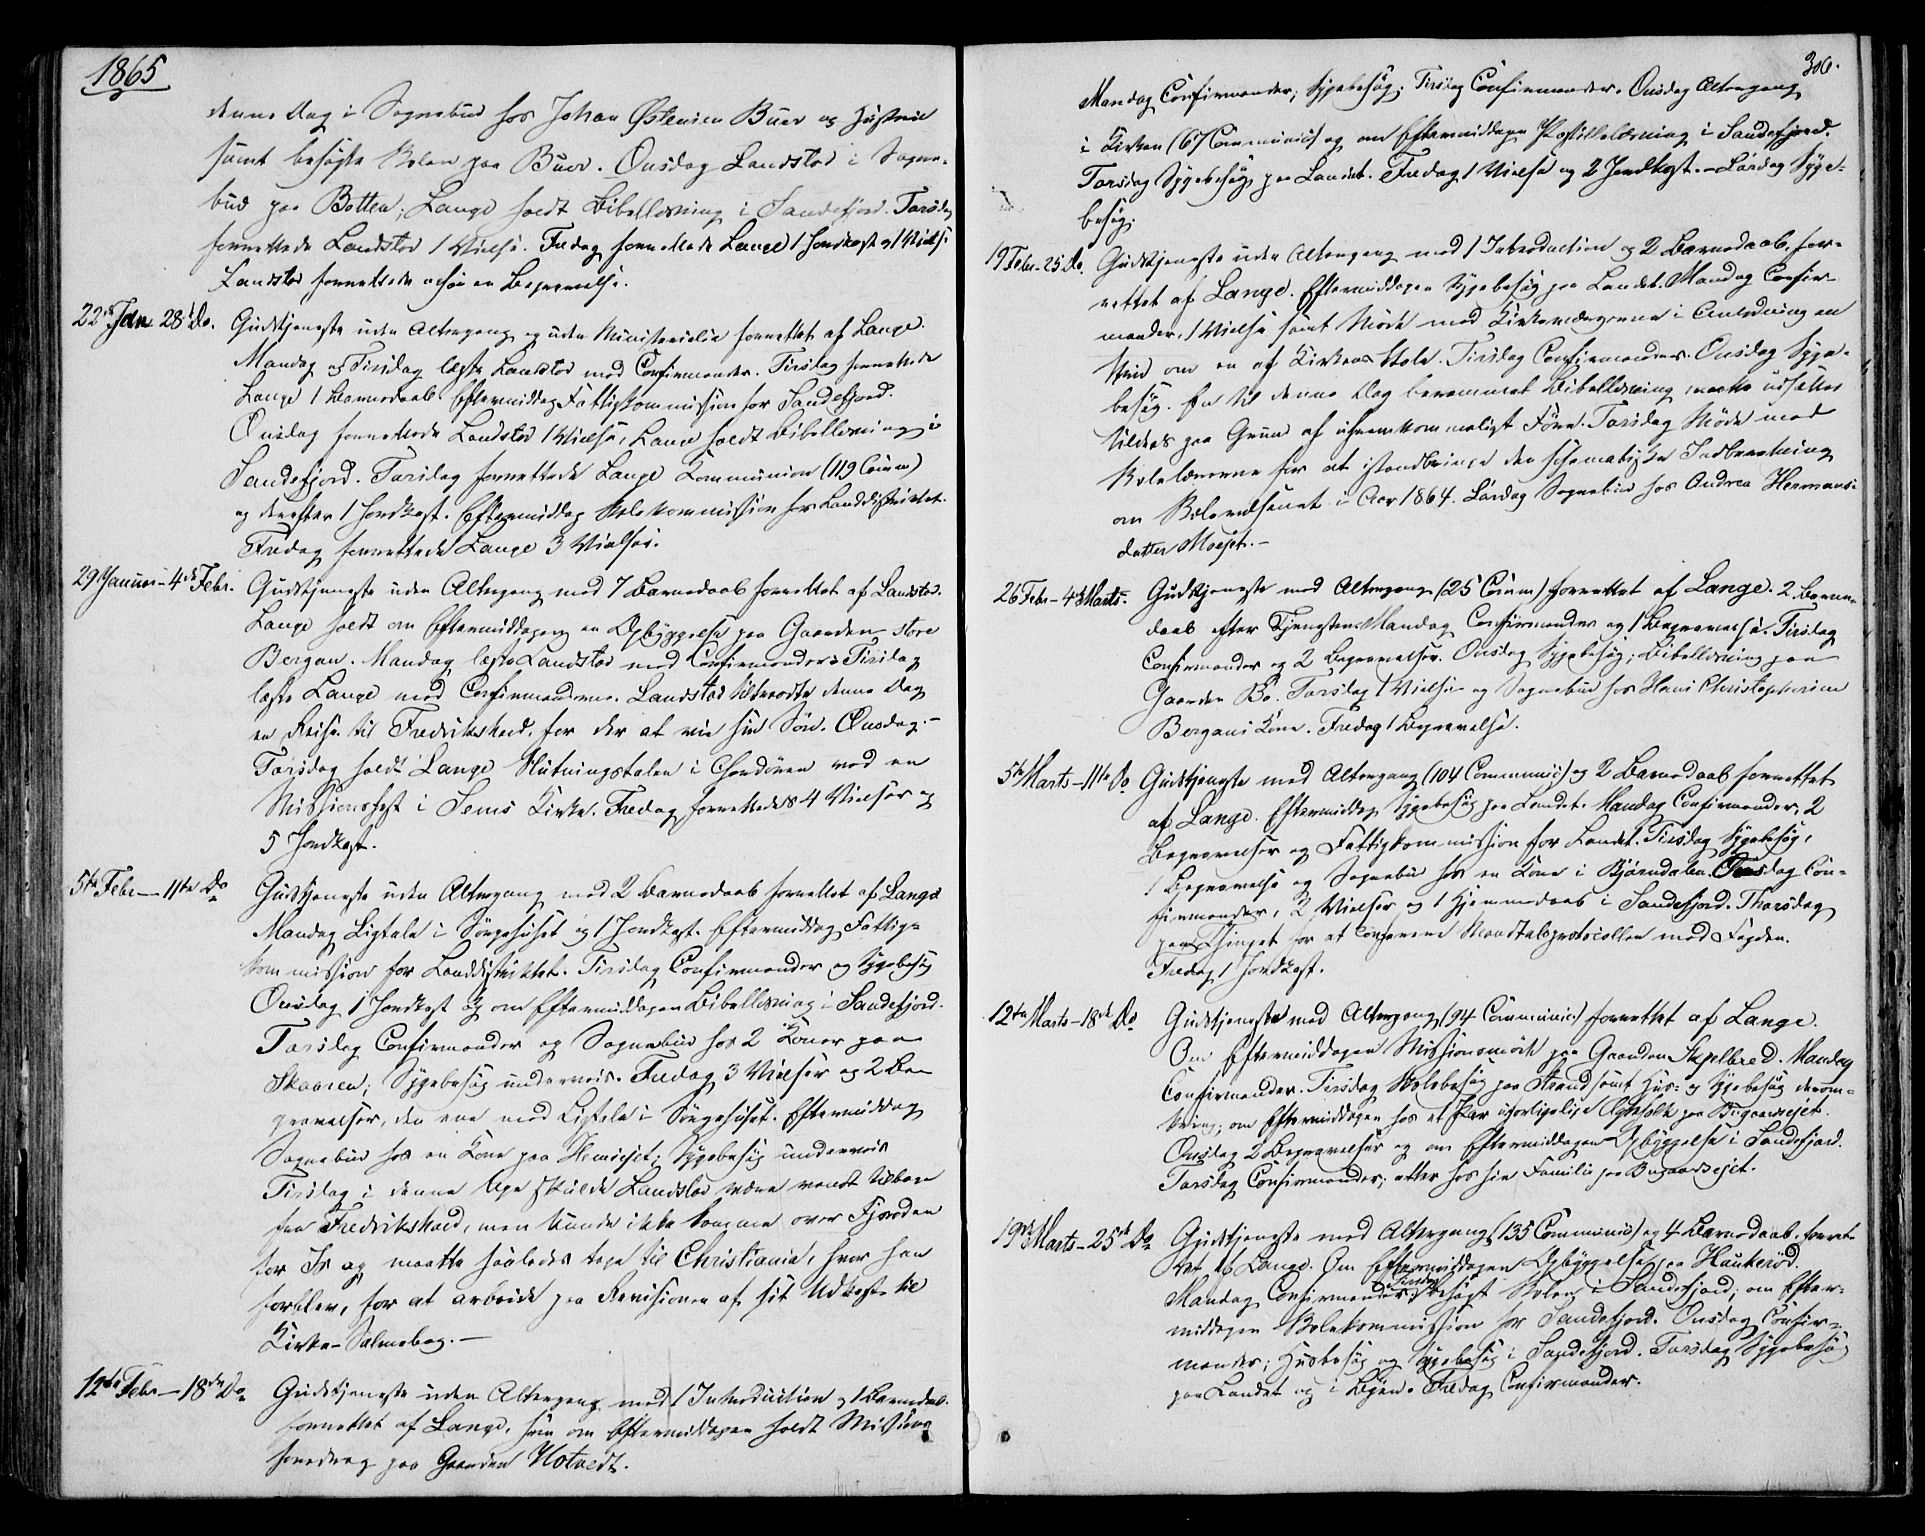 1865
denne Dag i Sognebud hos Johan Østensen Buer og Hustru
samt besøgte Skolen paa Buer. Onsdag Landstad i Sogne-
bud paa Botten; Lange holdt Bibellæsning i Sandefjord. Torsdag
forrettede Landstad 1 Vielse. Fredag forrettede Lange 1 Jordkast og 1 Vielse
Landstad forrettede ogsaa en Begravelse.
22de Jan 28de Do. Gudstjeneste uden Altergang og uden Ministerialia forrettet af Lange.
Mandag og Tirsdag læste Landstad med Confirmander. Tirsdag forrettede
Lange 1 Barnedaab Eftermiddag Fattigkommission for Sandefjord.
Onsdag forrettede Landstad 1 Vielse, Lange holdt Bibellæsning i
Sandefjord. Torsdag forrettede Lange Communion (119 Comm)
og derefter 1 Jordkast. Eftermiddag Skolekommission for Landdistriktet.
Fredag forrettede Lange 3 Vielser.
29 Januar - 4de Febr. Gudstjeneste uden Altergang med 7 Barnedaab forrettet af Landstad.
Lange holdt om Eftermiddagen en Opbyggelse paa Gaarden store
Bergan. Mandag læste Landstad med Confirmander. Tirsdag
læste Lange med Confirmanderne. Landstad tiltraadte denne Dag
en Reise til Fredrikshald, for der at vie sin Søn. Onsdag.-
Torsdag holdt Lange Slutningstalen i Chordøren ved en
Missionsfest i Sems Kirke. Fredag forrettedes 4 Vielser og
5 Jordkast.
5te Febr - 11te Do Gudstjeneste uden Altergang med 2 Barnedaab forrettet af Lange
Mandag Ligtale i Sørgehuset og 1 Jordkast. Eftermiddag Fattig-
kommission for Landdistriktet. Tirsdag Confirmander og Sygebesøg
Onsdag 1 Jordkast og om Eftermiddagen Bibellæsning i Sandefjord.
Torsdag Confirmander og Sognebud hos 2 Koner paa
Skaaren; Sygebesøg underveis. Fredag 3 Vielser og 2 Be-
gravelser, den ene med Ligtale i Sørgehuset. Eftermiddag
Sognebud hos en Kone paa Hemseiet; Sygebesøg underveis
Tirsdag i denne Uge skulde Landstad være vendt tilbage
fra Fredrikshald, men kunde ikke komme over Fjorden
for Is og maatte saaledes tage til Christiania, hvor han
forblev, for at arbeide paa Revisionen af sit Udkast til
Kirke-Salmebog.-
12te Febr - 18de Do Gudstjeneste uden Altergang med 1 Introduction og 1 Barnedaab.
forrettet af Lange, som om Eftermiddagen holdt Missions
foredrag paa Gaarden Hotvedt.
306.
Mandag Confirmander; Sygebesøg. Tirsdag Confirmander. Onsdag Altergang
i Kirken (67 Communic) og om Eftermiddagen Postillelæsning i Sandefjord.
Torsdag Sygebesøg paa Landet. Fredag 1 Vielse og 2 Jordkast. - Lørdag Syge-
besøg.
19 Febr - 25 Do. Gudstjeneste uden Altergang med 1 Introduction og 2 Barnedaab, for-
rettet af Lange. Eftermiddagen Sygebesøg paa Landet. Mandag Confir-
mander, 1 Vielse samt Møde med Kirkeværgerne i Anledning en
Strid om en af Kirkens Stole. Tirsdag Confirmander. Onsdag Syge-
besøg. En til denne Dag berammet Bibellæsning maatte udsættes
tildels paa Grund af ufremkommeligt Føre. Torsdag Møde med
Skolelærerne for at istandbringe den schematiske Indberetning
om Skolevæsenet i Aar 1864. Lørdag Sognebud hos Andrea Hermans-
datter Moejet.-
26 Febr - 4de Marts. Gudstjeneste med Altergang (25 Comm) forrettet af Lange. 2 Barne-
daab efter Tjenesten. Mandag Confirmander og 1 Begravelse. Tirsdag
Confirmander og 2 Begravelser. Onsdag Sygebesøg; Bibellæsning paa
Gaarden Bø. Torsdag 1 Vielse og Sognebud hos Hans Christophersen
Bergans Kone. Fredag 1 Begravelse.
5te Marts - 11te Do Gudstjeneste med Altergang (104 Communic) og 2 Barnedaab forrettet
af Lange. Eftermiddag Sygebesøg paa Landet. Mandag Confirmander, 2
Begravelser og Fattigkommission for Landet. Tirsdag Sygebesøg,
1 Begravelse og Sognebud hos en Kone i Bjørndalen. Onsdag Con-
firmander, 2 Vielser og 1 Hjemmedaab i Sandefjord. Thorsdag
paa Thinget for at conferere Mandtalsprotocollen med Fogden.
Fredag 1 Jordkast.
12te Marts - 18de Do Gudstjeneste med Altergang (94 Communic) forrettet af Lange.
Om Eftermiddagen Missionsmøde paa Gaarden Skjelbred. Mandag
Confirmander. Tirsdag Skolebesøg paa Strand samt Hus- og Sygebesøg derom-
kring; om Eftermiddagen hos et Par uforligelige Ægtefolk paa Bugaardsejet.
Onsdag 2 Begravelser og om Eftermiddagen Opbyggelse i Sandefjord.
Torsdag Confirmander; atter hos hin Familie paa Bugaardsejet.
19de Marts - 25de Do Gudstjeneste med Altergang (135 Communic) og 4 Barnedaab, forret-
tet af Lange. Om Eftermiddagen Opbyggelse paa Haukerød.
Mandag Confirmander, Tirsdag besøgt Skolen i Sandefjord; om Efter-
middagen Skolekommission for Sandefjord. Onsdag Confir-
mander; Husbesøg og Sygebesøg i Sandefjord. Torsdag Sygebesøg
paa Landet og i Byen. Fredag Confirmander.